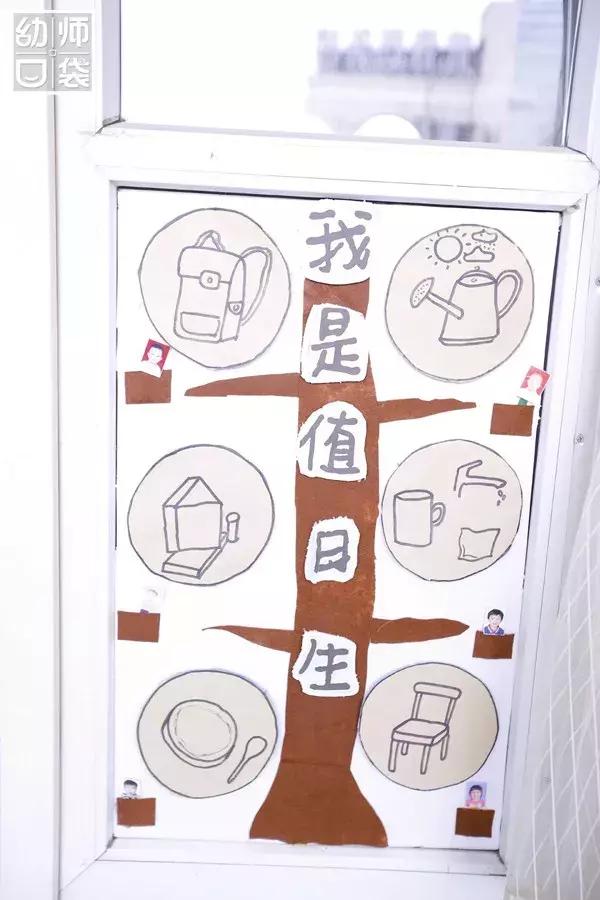 幼师口袋
我是值日生